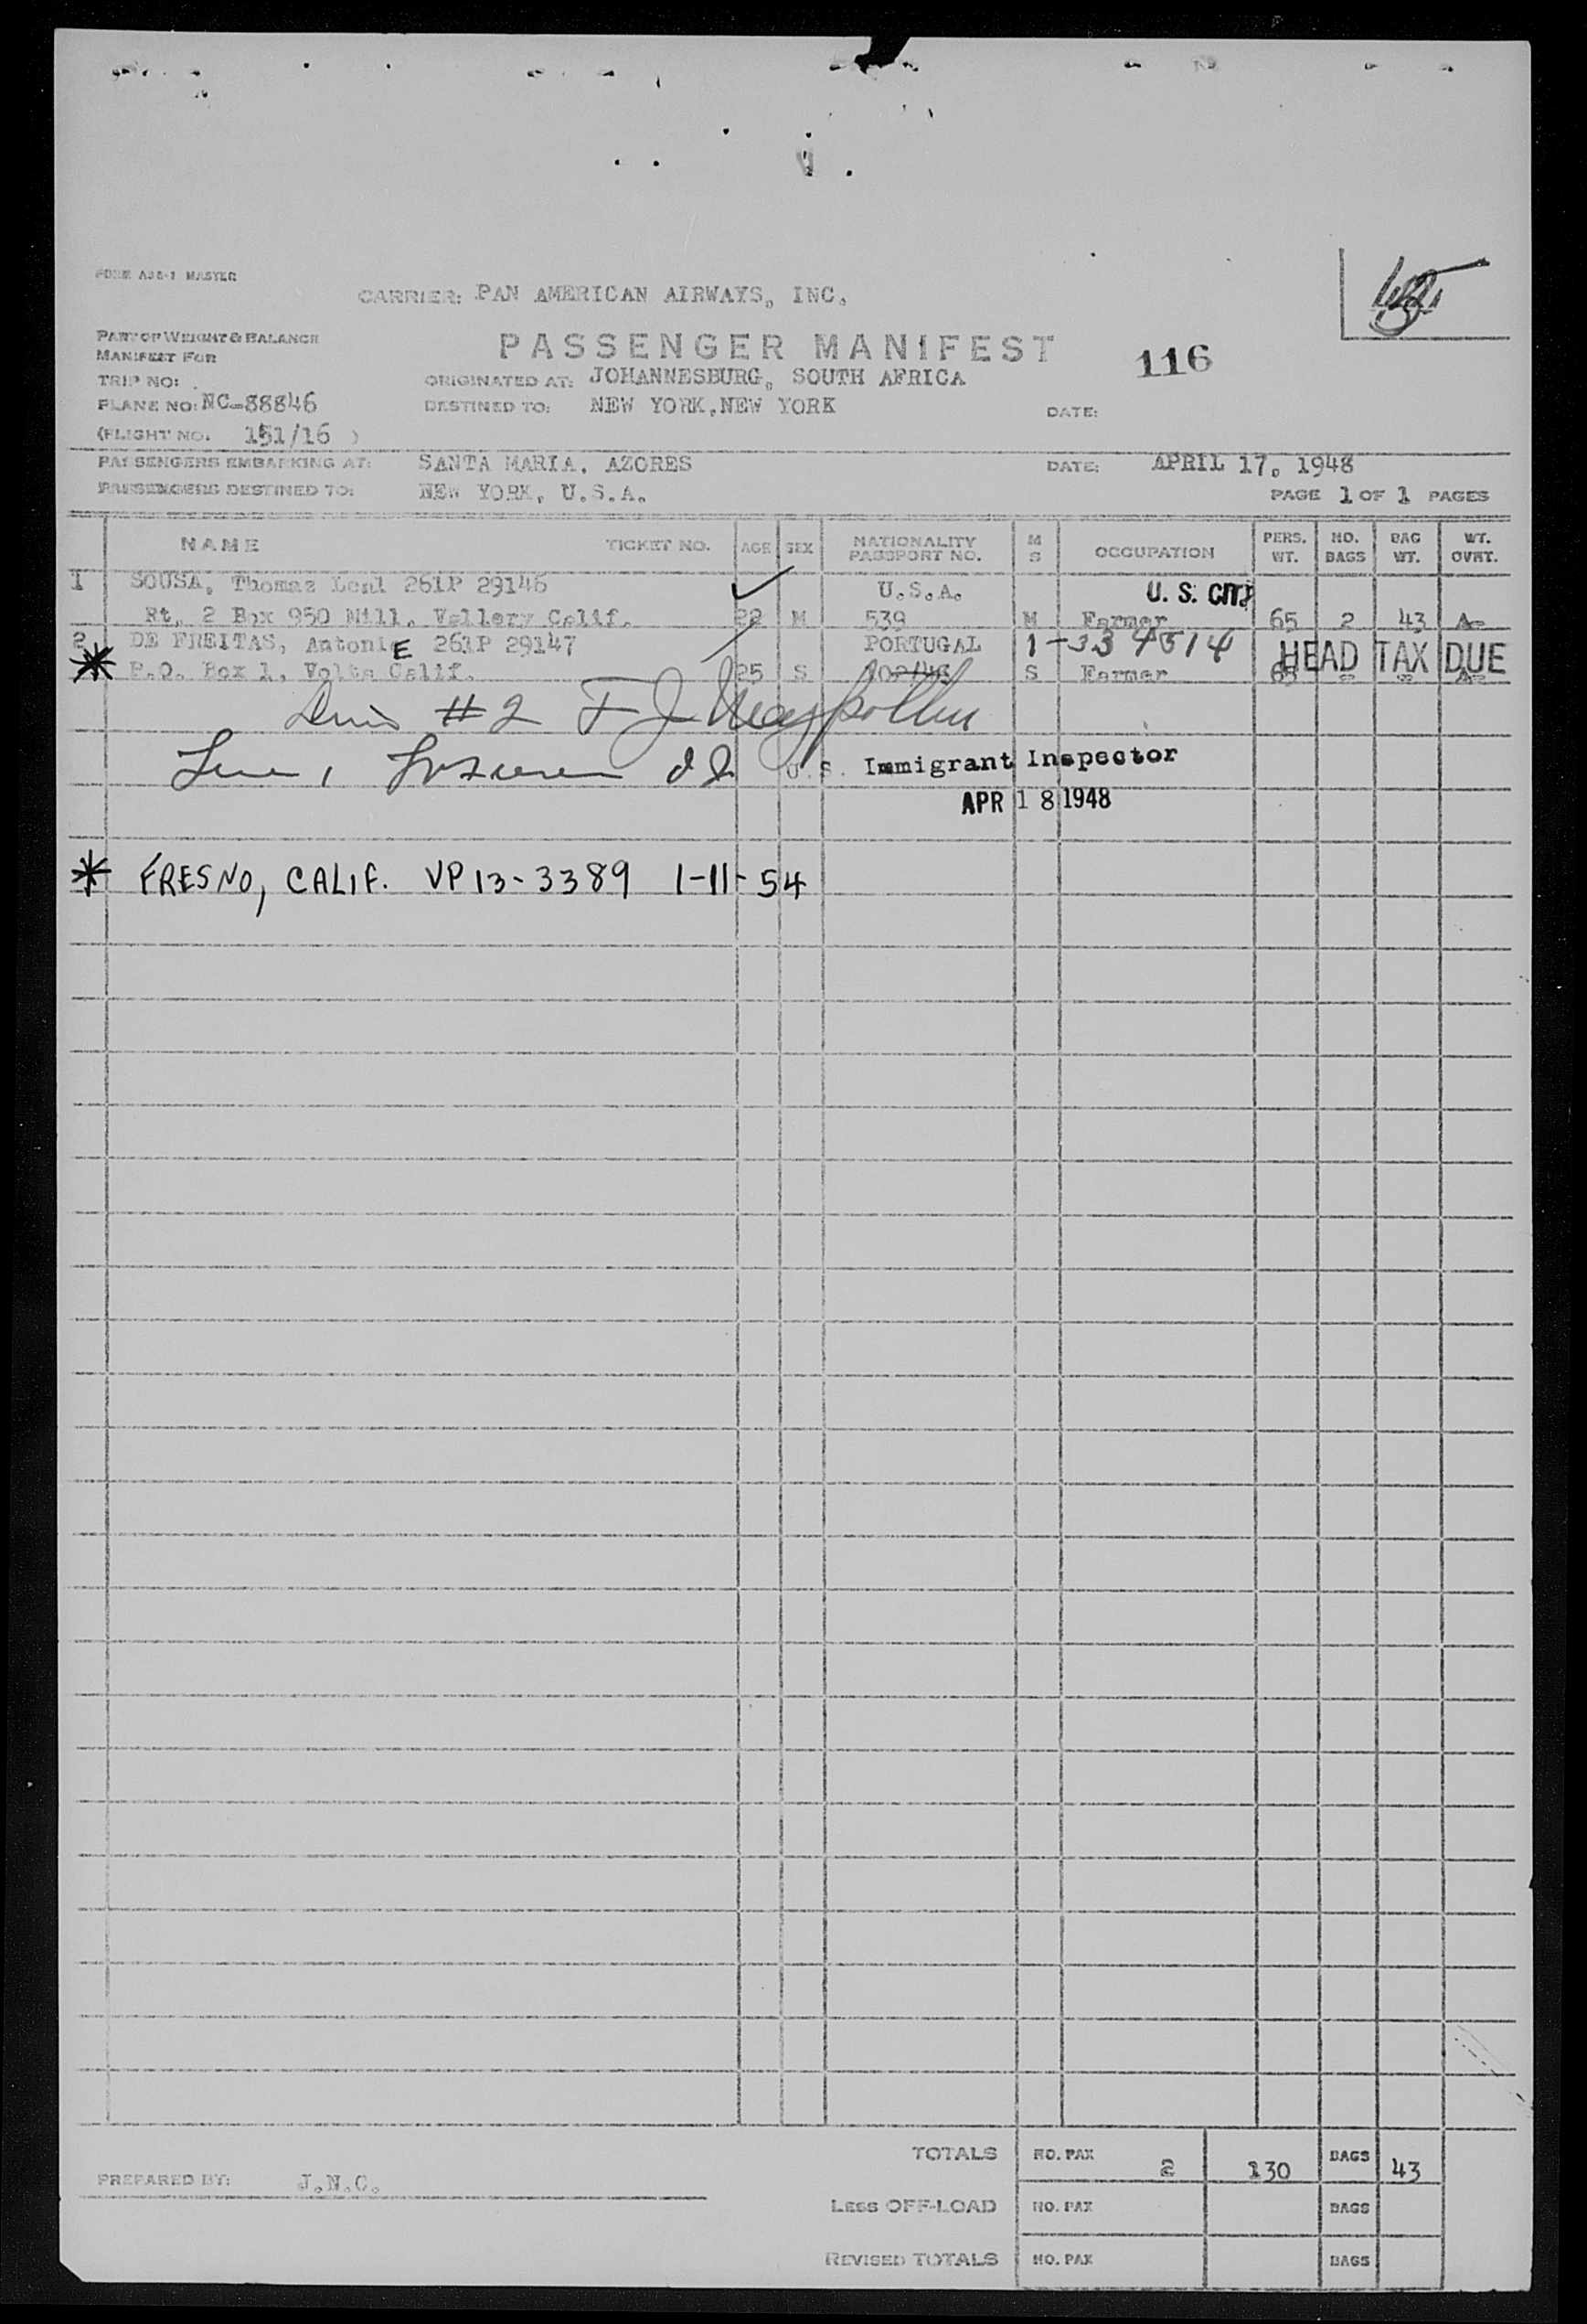 FORM ASB-1 MASTER
CARRIER: PAN AMERICAN AIRWAYS, INC.
PART OF WEIGHT & BALANCE
MANIFEST FOR
PASSENGER MANIFEST
116
TRIP NO:
ORIGINATED AT: JOHANNESBURG, SOUTH AFRICA
PLANE NO: NC-88846
DESTINED TO: NEW YORK, NEW YORK
DATE:
(FLIGHT NO. 151/16 )
PASSENGERS EMBARKING AT: SANTA MARIA, AZORES
DATE: APRIL 17, 1948
PASSENGERS DESTINED TO: NEW YORK, U.S.A.
PAGE 1 OF 1 PAGES
NAME TICKET NO. AGE SEX NATIONALITY PASSPORT NO. M S OCCUPATION PERS. WT. NO. BAGS BAG WT. WT. OVRT.
1 SOUSA, Thomaz Leal 261P 29146 U.S.A. U. S. CIT.
Rt. 2 Box 950 Mill. Vallery Calif. 22 M 539 M Farmer 65 2 43 A-
2 DE FREITAS, AntoniE 261P 29147 PORTUGAL 1-334514 HEAD TAX DUE
* P.O. Box 1, Volta Calif. 25 S S Farmer 65 - - A-
#2 F J
U. S. Immigrant Inspector
APR 18 1948
* FRESNO, CALIF. VP 13-3389 1-11-54
TOTALS NO. PAX 2 130 BAGS 43
PREPARED BY: J.N.C.
LESS OFF-LOAD NO. PAX BAGS
REVISED TOTALS NO. PAX BAGS